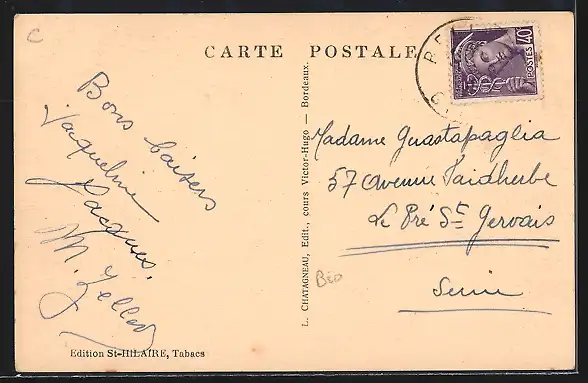 C
CARTE POSTALE
40
POSTES
Bons baisers
Jacqueline
Jacques.
M. Zeller
L. CHATAGNEAU, Edit., cours Victor-Hugo — Bordeaux.
Madame Guastapaglia
57 Avenue Faidherbe
Le Pré St Gervais
Seine
Edition St-HILAIRE, Tabacs